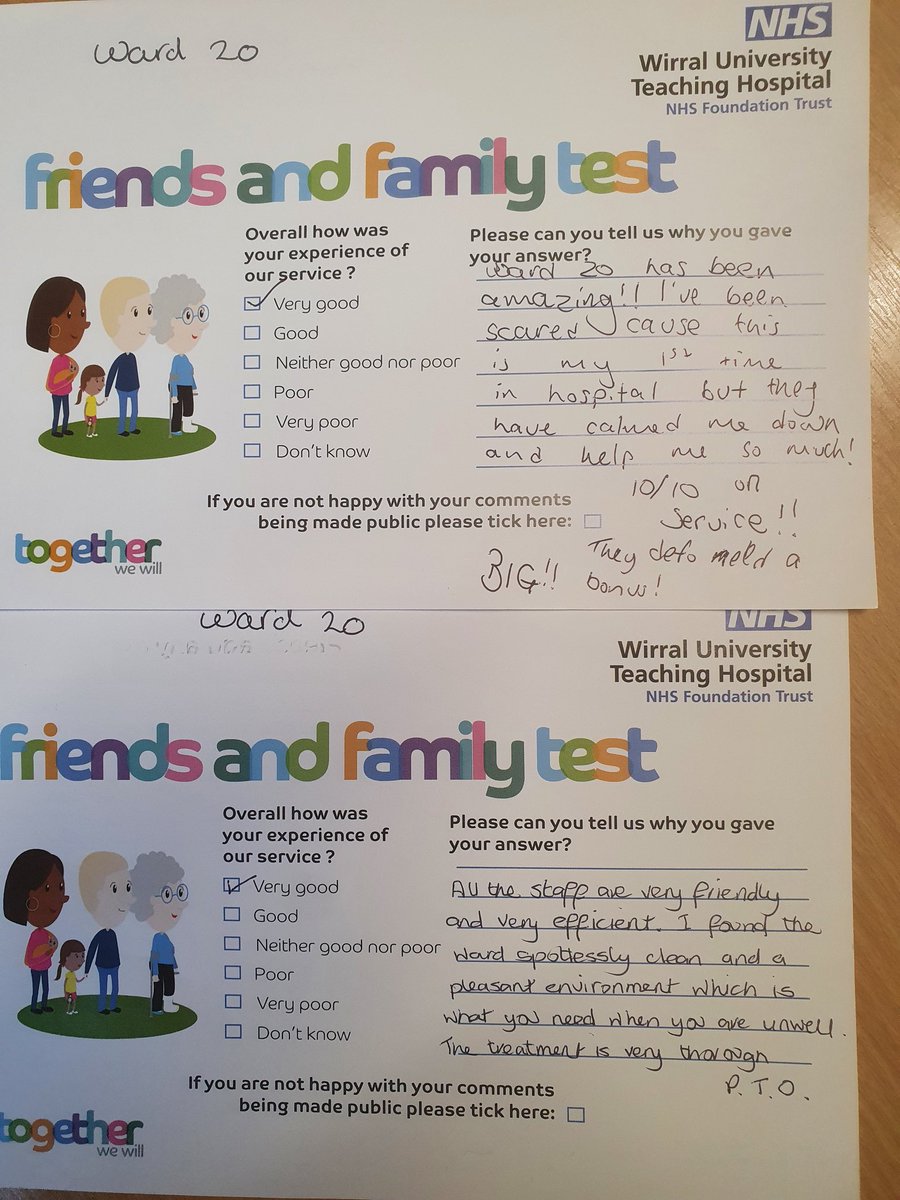 ward 20
NHS
Wirral University
Teaching Hospital
NHS Foundation Trust
friends and family test
Overall how was
your experience of
our service ?
Very good
Good
Neither good nor poor
Poor
Very poor
Don't know
Please can you tell us why you gave
your answer?
ward 20 has been
amazing!! I've been
scared cause this
is my 1st time
in hospital but they
have calmed me down
and help me so much!
10/10 on
Service!!
They defo need a
BIG!! bonus!
If you are not happy with your comments
being made public please tick here:
together
we will
ward 20
NHS
Wirral University
Teaching Hospital
NHS Foundation Trust
friends and family test
Overall how was
your experience of
our service ?
Very good
Good
Neither good nor poor
Poor
Very poor
Don't know
Please can you tell us why you gave
your answer?
All the staff are very friendly
and very efficient. I found the
ward spotlessly clean and a
pleasant environment which is
what you need when you are unwell.
The treatment is very thorough
P.T.O.
If you are not happy with your comments
being made public please tick here:
together
we will